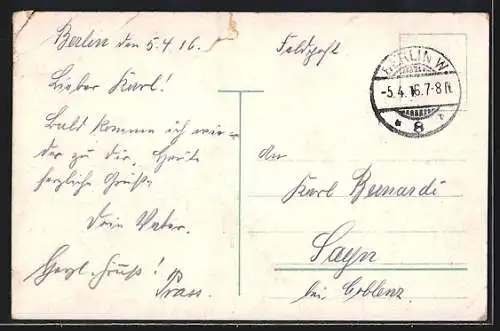 Berlin den 5.4.16.
Feldpost.
BERLIN W.
-5.4.16.7-8N.
* 8 *
Lieber Karl!
Bald komme ich wie-
der zu dir. Heute
herzliche Grüße
Dein Vater.
Herzl. Gruß!
An
Karl Bernardi
Sayn
bei Coblenz.